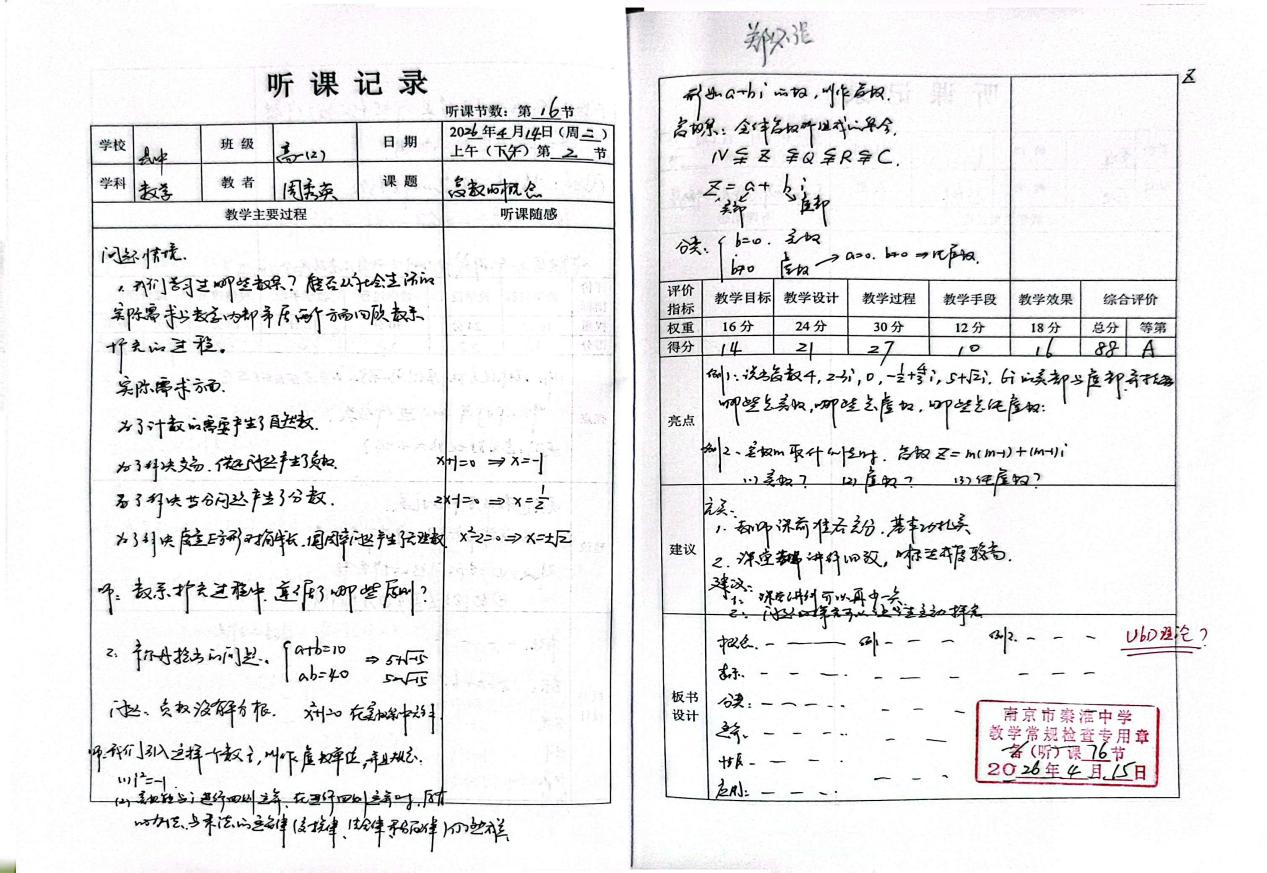 听课记录
听课节数：第 16 节
学校
班级 高一(2)
日期 2026年4月14日(周二)
上午（下午）第 2 节
学科 数学
教者 周秀英
课题 复数的概念
教学主要过程
听课随感
问题情境.
1. 我们学习过哪些数系？能否从社会生活的
实际需求与数学内部两个方面回顾数系
扩充的过程。
实际需求方面.
为了计数的需要产生了自然数.
为了解决 问题产生了负数. x+1=0 ⇒ x=-1
为了解决 分问题产生了分数. 2x-1=0 ⇒ x=1/2
为了解决度量正方形对角线长, 问题产生了无理数 x²-2=0 ⇒ x=±√2
师：数系扩充过程中，遵循了哪些原则？
2. 卡尔丹提出的问题. { a+b=10 ab=40 ⇒ 5+√-15 5-√-15
问题、负数没有平方根.
师：我们引入这样一个数i, 叫作虚数单位, 并且规定:
(1) i²=-1
(2) 实数能与i进行四则运算, 在进行四则运算时, 原有
的加法、与乘法的运算律(交换律、结合律和分配律)仍然成立
形如a+bi的数, 叫作复数.
复数集：全体复数所组成的集合.
N⫋Z⫋Q⫋R⫋C.
Z
Z = a + bi
实部 虚部
分类: { b=0. 实数
b≠0 虚数 → a=0. b≠0 ⇒ 纯虚数.
评价指标 教学目标 教学设计 教学过程 教学手段 教学效果 综合评价
权重 16分 24分 30分 12分 18分 总分 等第
得分 14 21 27 10 16 88 A
亮点
例1: 说出复数4, 2-3i, 0, -1/2+4/3i, 5+√2i, 6i的实部与虚部, 并指出
哪些是实数, 哪些是虚数, 哪些是纯虚数:
例2、实数m取什么值时, 复数 Z=m(m-1)+(m-1)i
(1) 实数? (2) 虚数? (3) 纯虚数?
建议
1. 教师课前准备充分, 基本功扎实
2. 课堂 讲练
建议:
1.
2. 问题的探究可以让学生主动探究
板书设计
概念. 例1. 例2.
分类:
应用:
UbD理论?
南京市秦淮中学
教学常规检查专用章
备（听）课 16 节
2026年4月15日